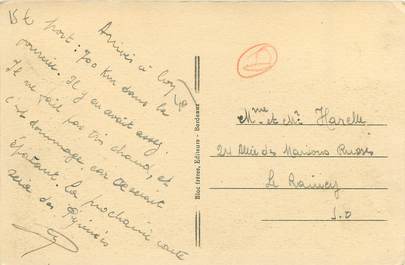 Arrivés à bon
port : 700 km dans la
journée. Il y en avait assez
Il ne fait pas très chaud, et
c'est dommage, car ce serait
épatant. La prochaine carte
sera des Pyrénées
Bloc frères, Editeurs - Bordeaux
Mme et Mr Harelle
24 Allée des Maisons Russes
Le Raincy
S.O